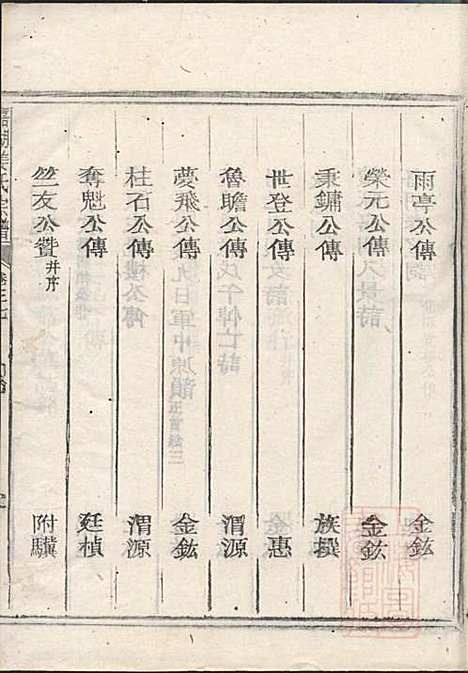 雨亭公傳 金鉉
榮元公傳 金鉉
秉鏞公傳 族撰
世登公傳 金惠
魯瞻公傳 渭源
夢飛公傳 金鉉
柱石公傳 渭源
奪魁公傳 廷楨
竺友公贊并序 附驥
氏宗譜